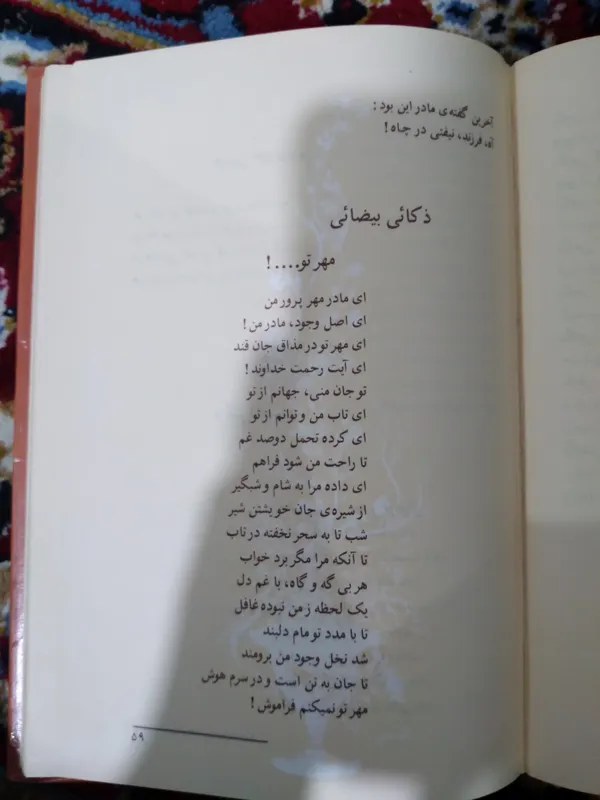 آخرین گفته‌ی مادر این بود :
آه، فرزند، نیفتی در چاه !
ذکائی بیضائی
مهر تو.... !
ای مادر مهر پرور من
ای اصل وجود، مادر من !
ای مهر تو در مذاق جان قند
ای آیت رحمت خداوند !
تو جان منی، جهانم از تو
ای تاب من و توانم از تو
ای کرده تحمل دوصد غم
تا راحت من شود فراهم
ای داده مرا به شام و شبگیر
از شیره‌ی جان خویشتن شیر
شب تا به سحر نخفته در تاب
تا آنکه مرا مگر برد خواب
هر بی گه و گاه، با غم دل
یک لحظه ز من نبوده غافل
تا با مدد تو مام دلبند
شد نخل وجود من برومند
تا جان به تن است و در سرم هوش
مهر تو نمیکنم فراموش !
۵۹